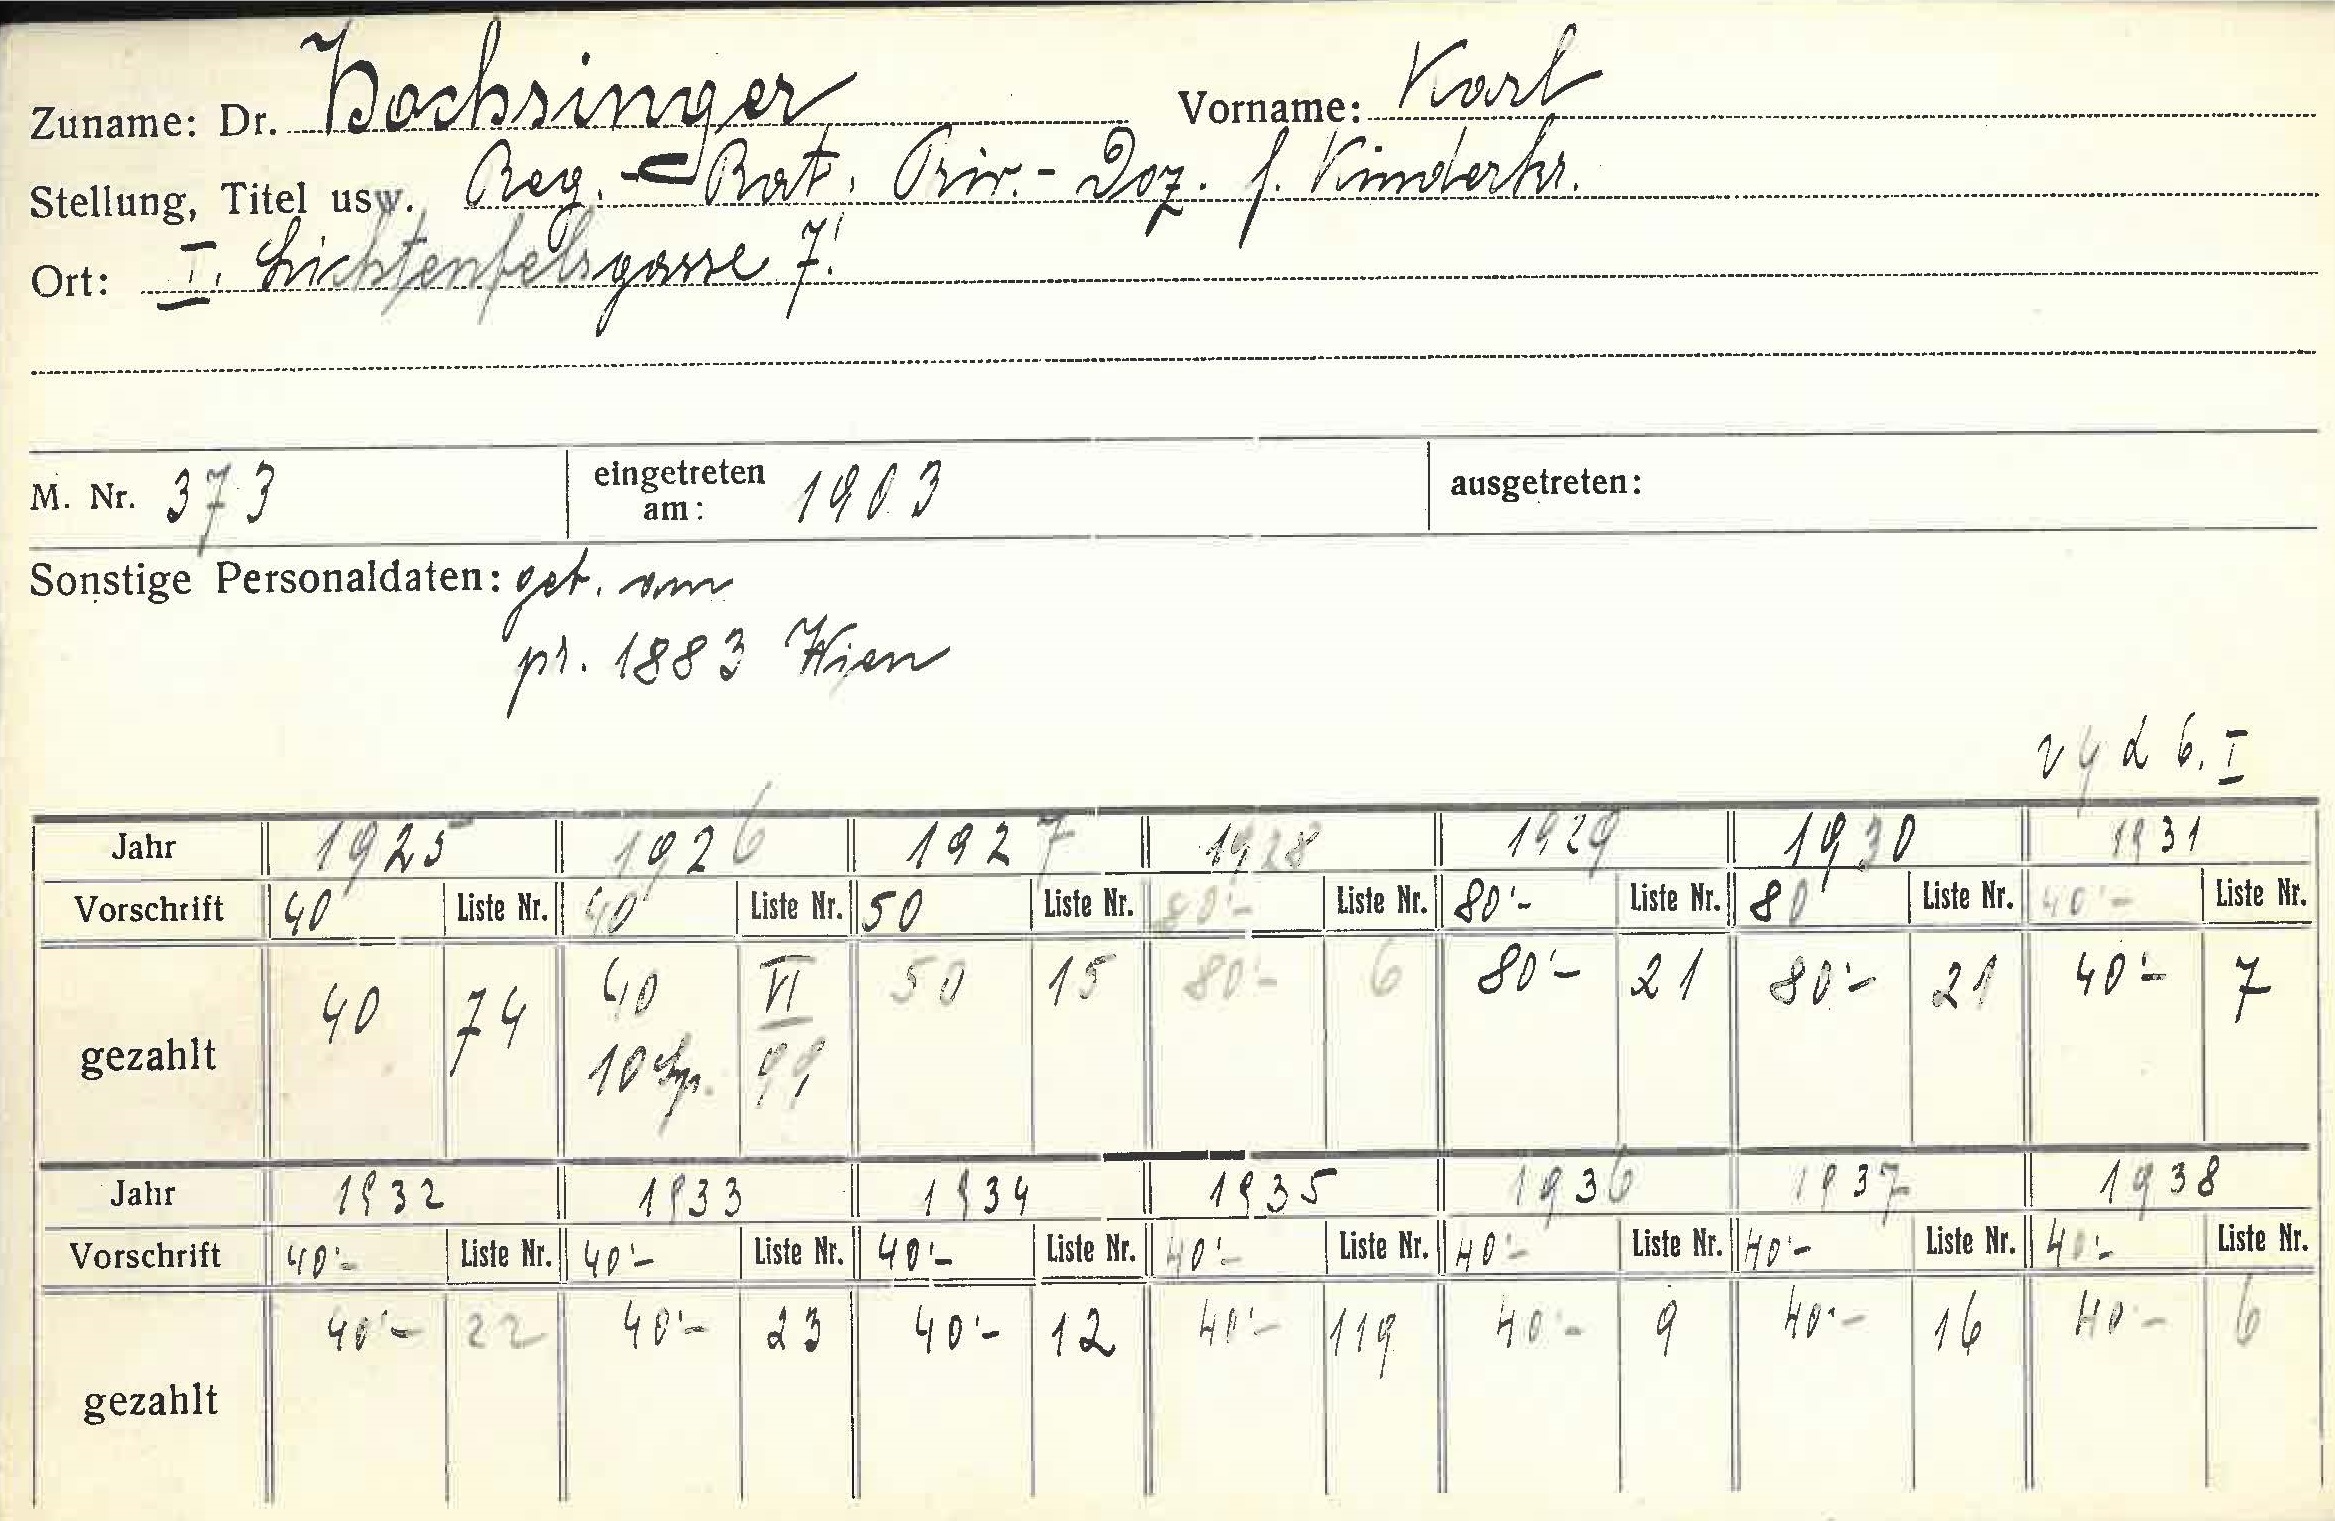 Zuname: Dr. Hochsinger Vorname: Karl
Stellung, Titel usw. Reg.-Rat, Priv.-Doz. f. Kinderhr.
Ort: I. Lichtenfelsgasse 7!
M. Nr. 373 eingetreten am: 1903 ausgetreten:
Sonstige Personaldaten: geb. am
pr. 1883 Wien
6. I
Jahr 1925 1926 1927 1928 1929 1930 1931
Vorschrift 40 Liste Nr. 40 Liste Nr. 50 Liste Nr. 80'- Liste Nr. 80'- Liste Nr. 80 Liste Nr. 40'- Liste Nr.
gezahlt 40 74 40 VI 50 15 80'- 6 80'- 21 80'- 21 40'- 7
10 99
Jahr 1932 1933 1934 1935 1936 1937 1938
Vorschrift 40'- Liste Nr. 40'- Liste Nr. 40'- Liste Nr. 40'- Liste Nr. 40'- Liste Nr. 40'- Liste Nr. 40'- Liste Nr.
gezahlt 40'- 22 40'- 23 40'- 12 40'- 119 40'- 9 40'- 16 40'- 6